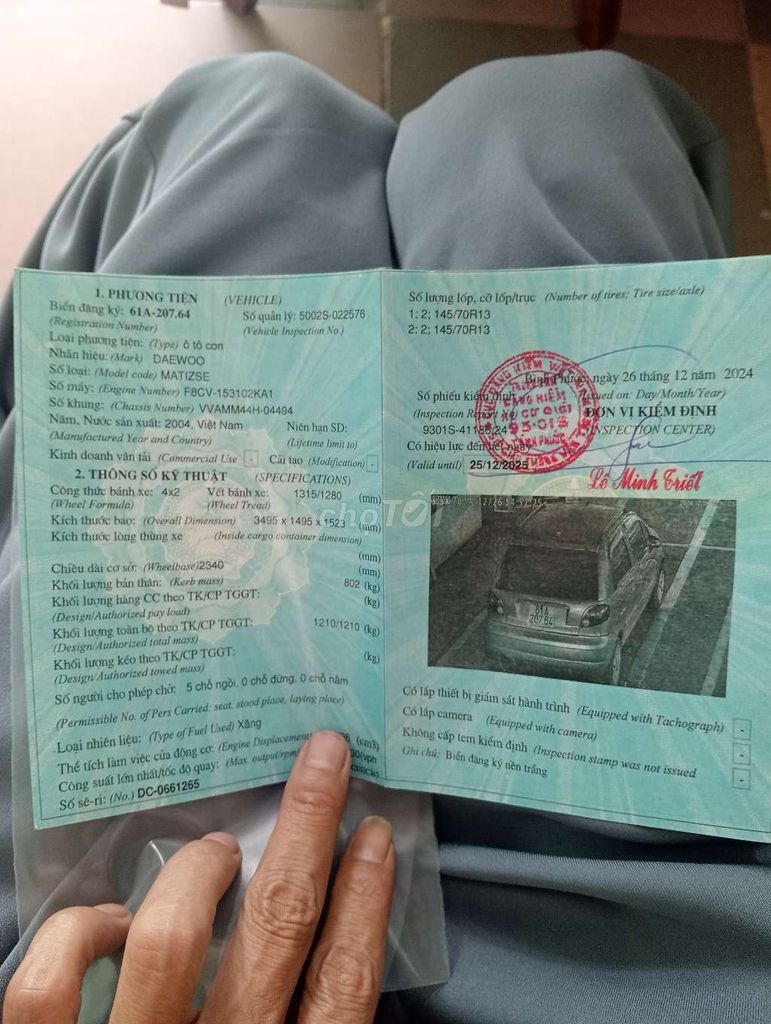 1. PHƯƠNG TIỆN (VEHICLE)
Biển đăng ký: 61A-207.64 Số quản lý: 5002S-022576
(Registration Number) (Vehicle Inspection No.)
Loại phương tiện: (Type) ô tô con
Nhãn hiệu: (Mark) DAEWOO
Số loại: (Model code) MATIZSE
Số máy: (Engine Number) F8CV-153102KA1
Số khung: (Chassis Number) VVAMM44H-04494
Năm, Nước sản xuất: 2004, Việt Nam Niên hạn SD:
(Manufactured Year and Country) (Lifetime limit to)
Kinh doanh vận tải (Commercial Use) - Cải tạo (Modification) -
2. THÔNG SỐ KỸ THUẬT (SPECIFICATIONS)
Công thức bánh xe: 4x2 Vết bánh xe: 1315/1280 (mm)
(Wheel Formula) (Wheel Tread)
Kích thước bao: (Overall Dimension) 3495 x 1495 x 1523 (mm)
Kích thước lòng thùng xe (Inside cargo container dimension)
(mm)
Chiều dài cơ sở: (Wheelbase) 2340 (mm)
Khối lượng bản thân: (Kerb mass) 802 (kg)
Khối lượng hàng CC theo TK/CP TGGT: (kg)
(Design/Authorized pay load)
Khối lượng toàn bộ theo TK/CP TGGT: 1210/1210 (kg)
(Design/Authorized total mass)
Khối lượng kéo theo TK/CP TGGT: (kg)
(Design/Authorized towed mass)
Số người cho phép chở: 5 chỗ ngồi, 0 chỗ đứng, 0 chỗ nằm
(Permissible No. of Pers Carried: seat, stood place, laying place)
Loại nhiên liệu: (Type of Fuel Used) Xăng
Thể tích làm việc của động cơ: (Engine Displacement) (cm3)
Công suất lớn nhất/tốc độ quay: (Max. output/rpm) vph
Số sê-ri: (No.) DC-0661265
Số lượng lốp, cỡ lốp/trục (Number of tires; Tire size/axle)
1: 2; 145/70R13
2: 2; 145/70R13
Bình Phước, ngày 26 tháng 12 năm 2024
Số phiếu kiểm định (Issued on: Day/Month/Year)
(Inspection Report No) ĐƠN VỊ KIỂM ĐỊNH
9301S-41186/24 (INSPECTION CENTER)
Có hiệu lực đến hết ngày
(Valid until) 25/12/2025
Lê Minh Triết
ĐĂNG KIỂM
93-01S
BÌNH PHƯỚC
choTỐT
61A
207.64
Có lắp thiết bị giám sát hành trình (Equipped with Tachograph) -
Có lắp camera (Equipped with camera) -
Không cấp tem kiểm định (Inspection stamp was not issued -
Ghi chú: Biển đăng ký nền trắng